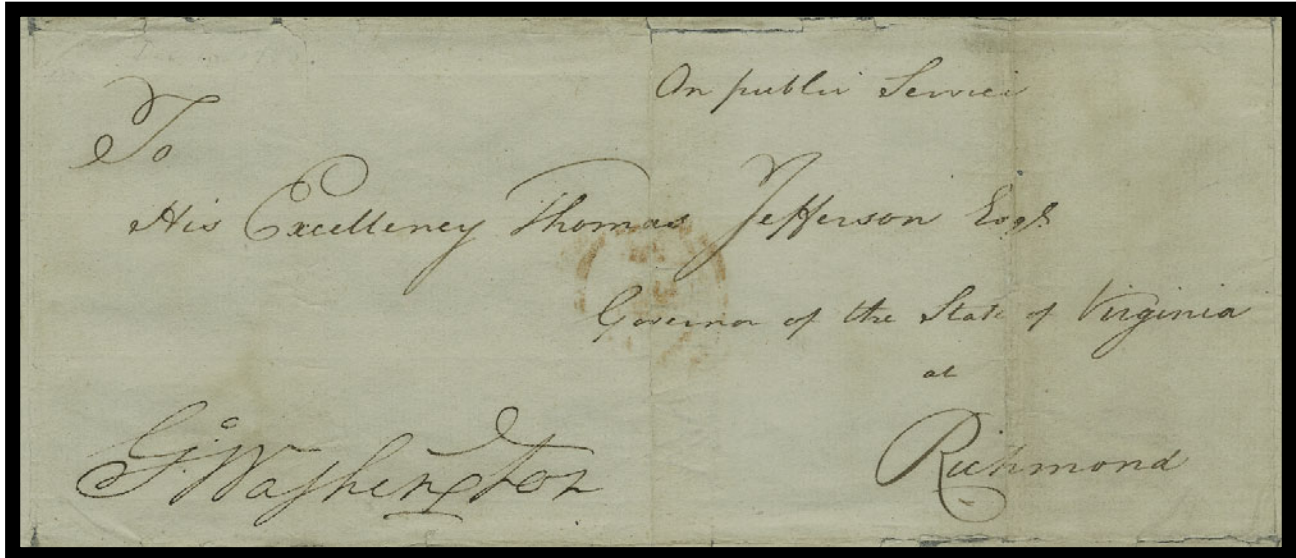 On public Service
To
His Excellency Thomas Jefferson Esqr.
Governor of the State of Virginia
at
Richmond
Go: Washington